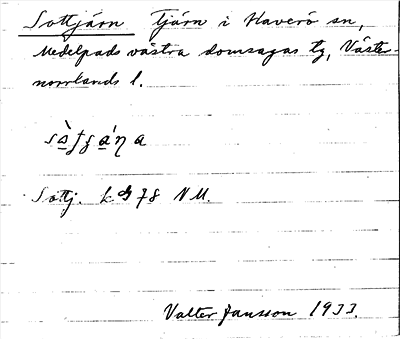 Sottjärn Tjärn i Haverö sn,
Medelpads västra domsagas tg, Väster-
norrlands l.
Sottj. k 78 N M.
Valter Jansson 1933.